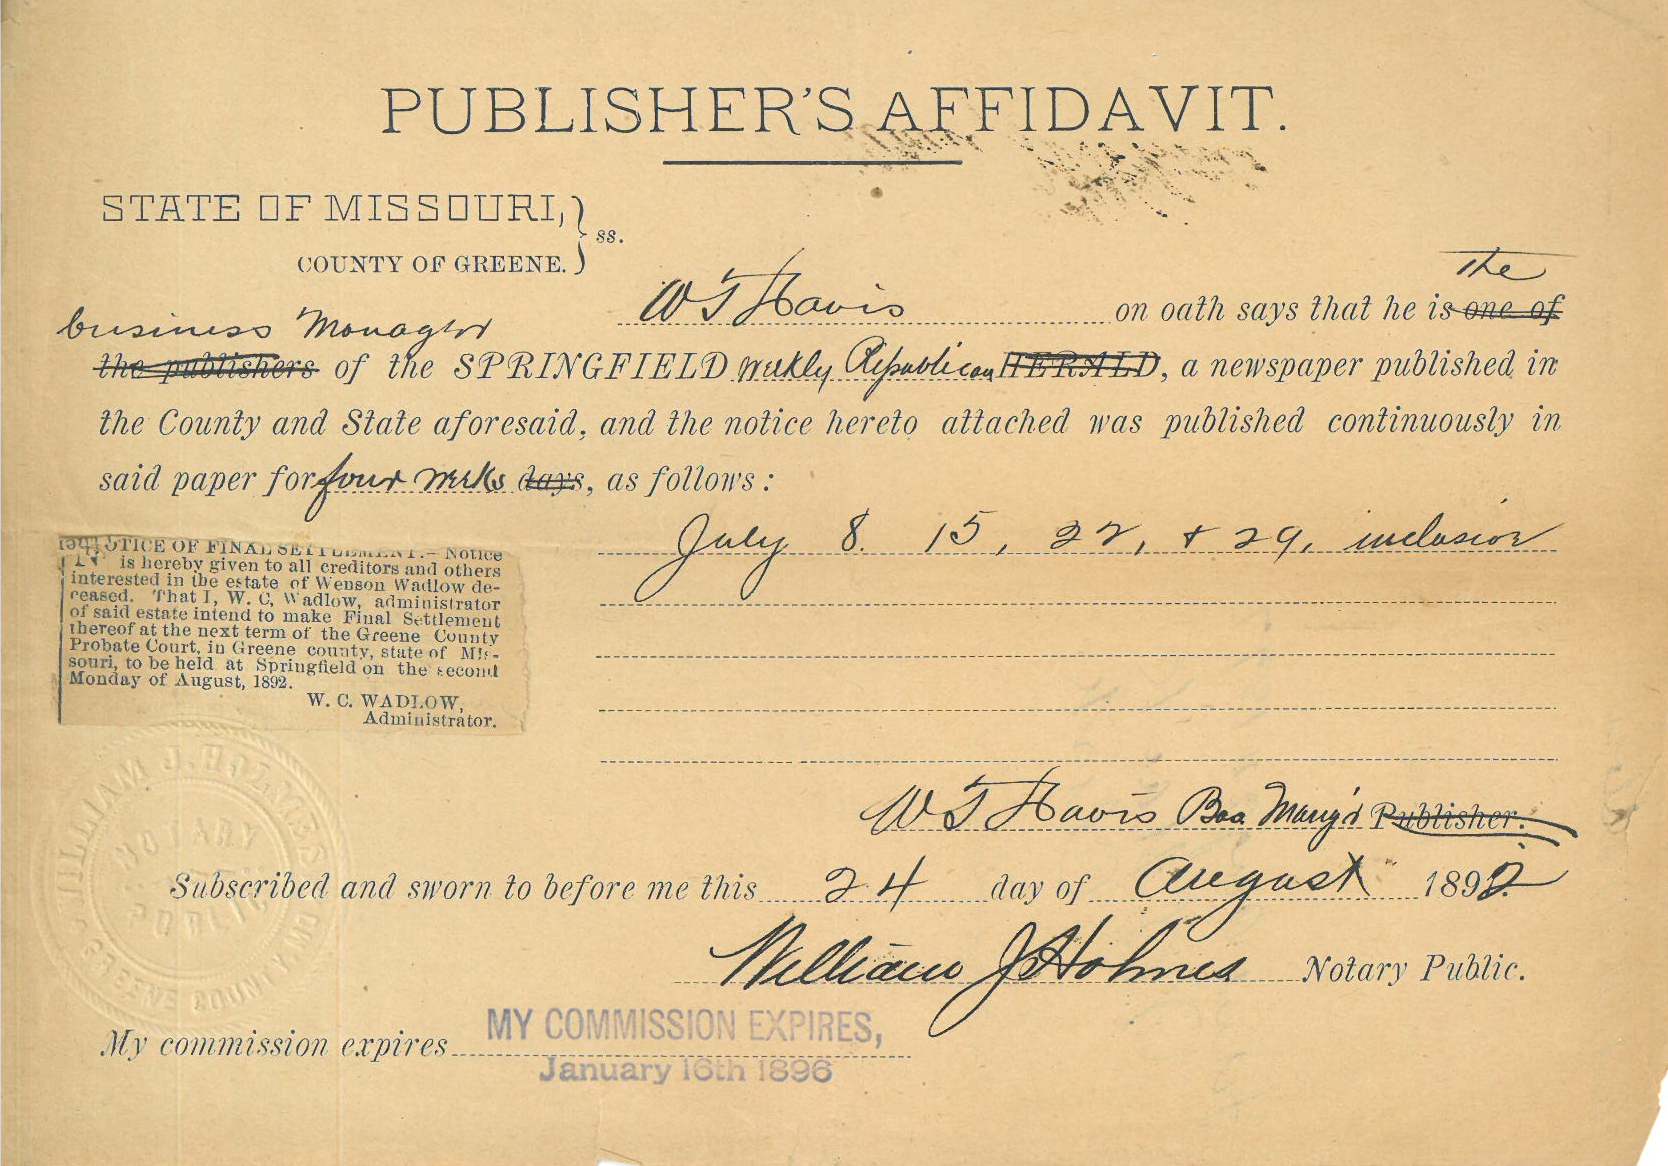 PUBLISHER'S AFFIDAVIT.
STATE OF MISSOURI,
COUNTY OF GREENE. } ss.
The
W T Havis on oath says that he is one of
business Manager
the publishers of the SPRINGFIELD Weekly Republican HERALD, a newspaper published in
the County and State aforesaid, and the notice hereto attached was published continuously in
said paper for four weeks days, as follows:
July 8. 15, 22, + 29, inclusive
NOTICE OF FINAL SETTLEMENT.— Notice
is hereby given to all creditors and others
interested in the estate of Wenson Wadlow de-
ceased. That I, W. C. Wadlow, administrator
of said estate intend to make Final Settlement
thereof at the next term of the Greene County
Probate Court, in Greene county, state of Mis-
souri, to be held at Springfield on the second
Monday of August, 1892.
W. C. WADLOW,
Administrator.
W T Havis Bus Mang'r Publisher.
Subscribed and sworn to before me this 24 day of August 1892
William J Holmes Notary Public.
My commission expires MY COMMISSION EXPIRES,
January 16th 1896
WILLIAM J. HOLMES
NOTARY
PUBLIC
GREENE COUNTY, MO